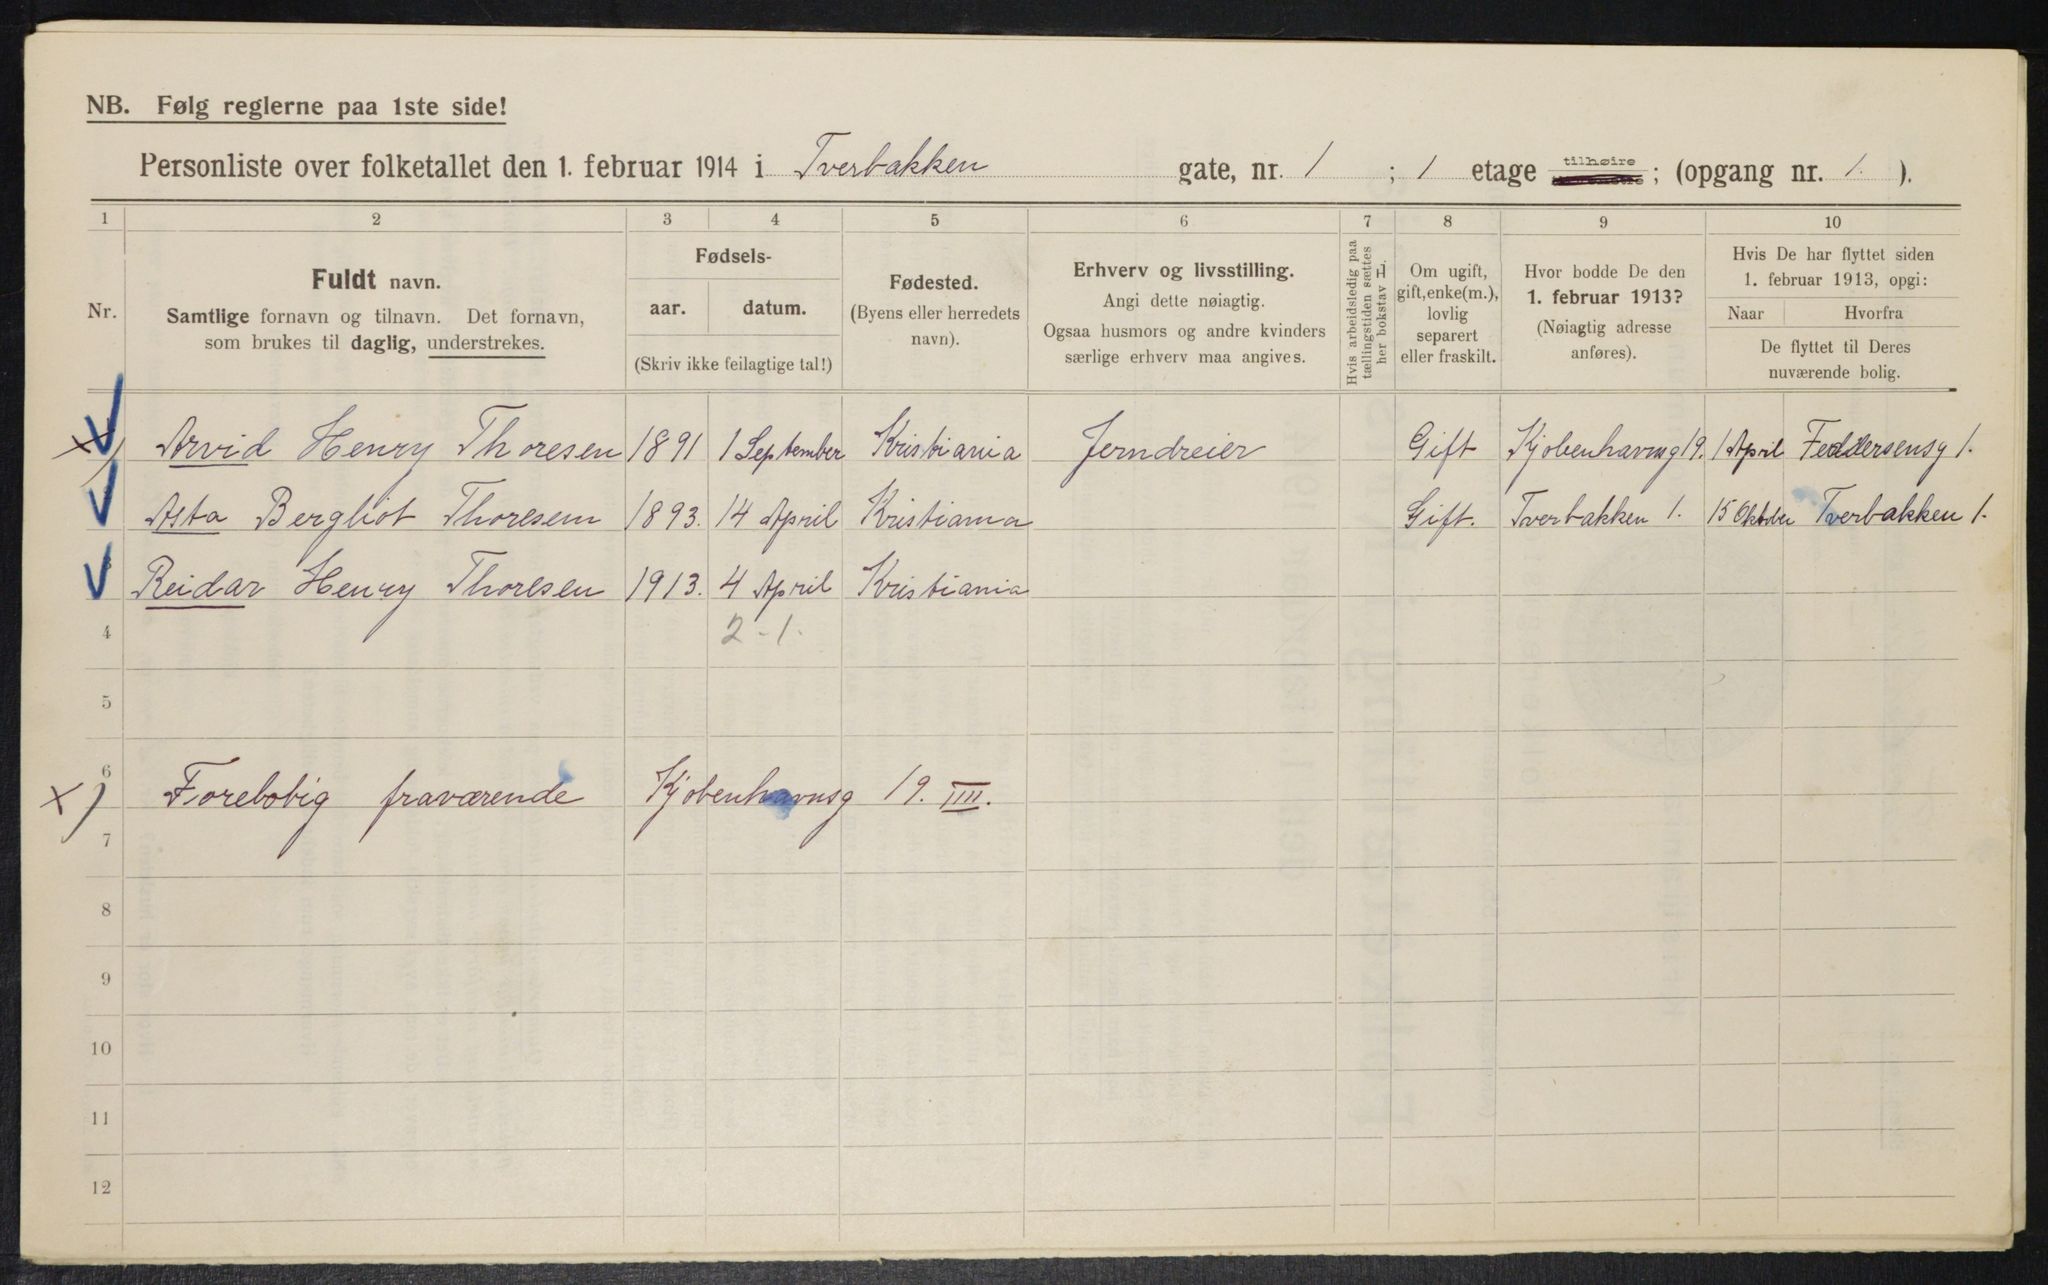 NB. Følg reglerne paa 1ste side!
Personliste over folketallet den 1. februar 1914 i Tverbakken gate, nr. 1 ; 1 etage tilhøire ; (opgang nr. 1. ).
1 2 3 4 5 6 7 8 9 10
Nr.
Fuldt navn.
Samtlige fornavn og tilnavn. Det fornavn,
som brukes til daglig, understrekes.
Fødsels-
aar. datum.
(Skriv ikke feilagtige tal!)
Fødested.
(Byens eller herredets
navn).
Erhverv og livsstilling.
Angi dette nøiagtig.
Ogsaa husmors og andre kvinders
særlige erhverv maa angives.
Hvis arbeidsledig paa
tællingstiden sættes
her bokstav L.
Om ugift,
gift, enke(m.),
lovlig
separert
eller fraskilt.
Hvor bodde De den
1. februar 1913?
(Nøiagtig adresse
anføres).
Hvis De har flyttet siden
1. februar 1913, opgi:
Naar Hvorfra
De flyttet til Deres
nuværende bolig.
x) Arvid Henry Thoresen 1891 1 September Kristiania Jerndreier Gift Kjøbenhavnsg 19. 1 April Feddersensg 1.
Asta Bergliot Thoresen 1893. 14 April Kristiania Gift. Tverbakken 1. 15 Oktober Tverbakken 1.
Reidar Henry Thoresen 1913. 4 April Kristiania
4 2-1.
5
6
x) Forebobig fraværende Kjøbenhavnsg 19. IIII.
7
8
9
10
11
12